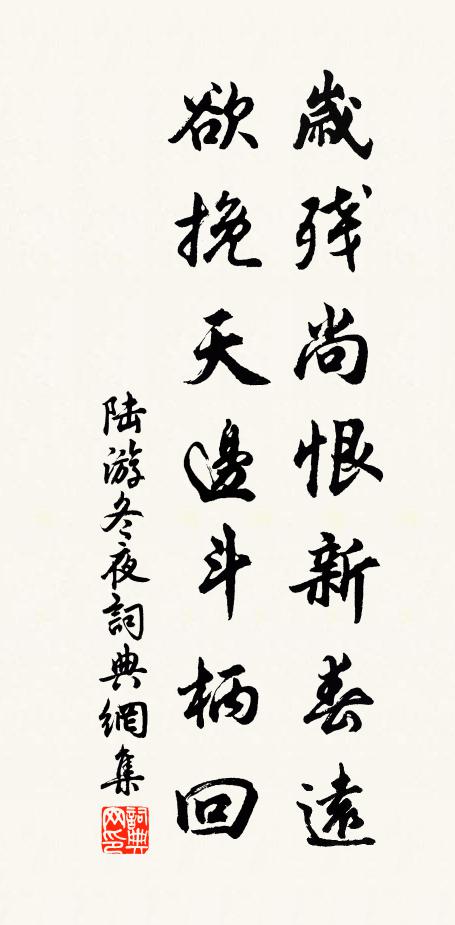 歲殘尚恨新春遠
欲挽天邊斗柄回
陸游冬夜詞典網集
詞典网印